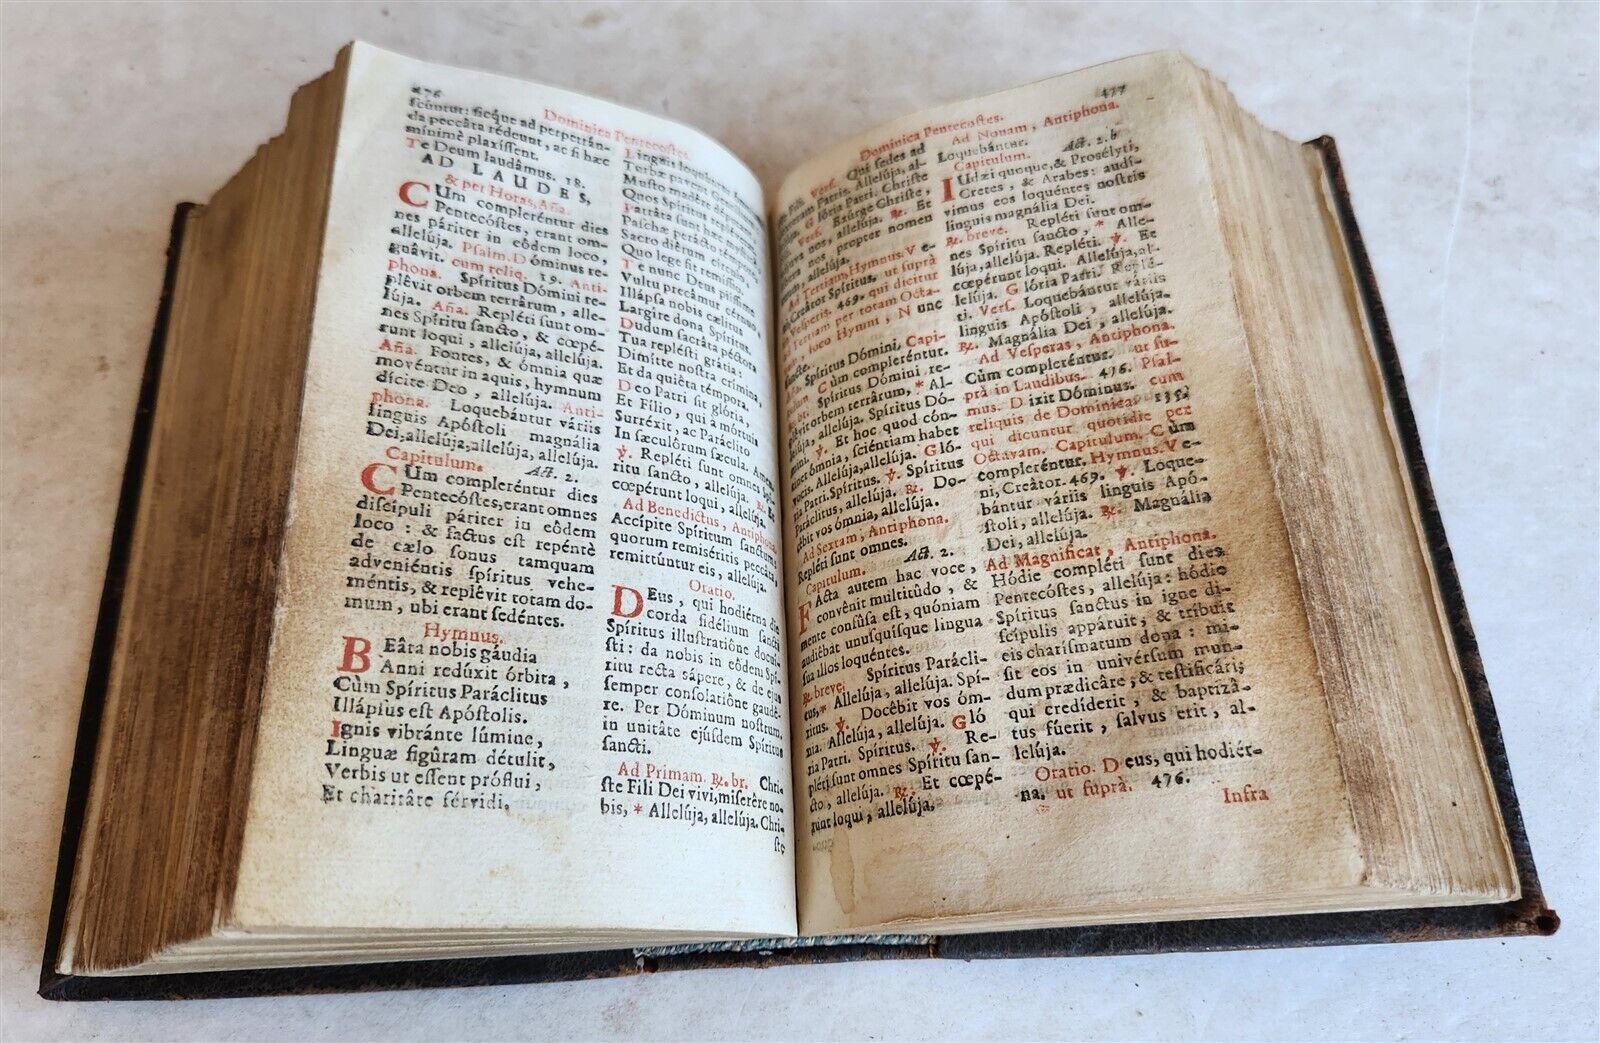 476
Dominica Pentecostes.
scúntur: sicque ad perpetrân-
da peccâta rédeunt, ac si hæc
mínimè planxissent.
Te Deum laudâmus. 18.
AD LAUDES,
& per Horas, Aña.
CUm compleréntur dies
Pentecóstes, erant om-
nes páriter in eôdem loco,
allelúja. Psalm. Dóminus re-
gnâvit. cum reliq. 19. Anti-
phona. Spíritus Dómini re-
plêvit orbem terrârum, alle-
lúja. Aña. Repléti sunt om-
nes Spíritu sancto, & cœpé-
runt loqui, allelúja, allelúja.
Aña. Fontes, & ómnia quæ
movéntur in aquis, hymnum
dícite Deo, allelúja. Anti-
phona. Loquebántur váriis
linguis Apóstoli magnália
Dei, allelúja, allelúja, allelúja.
Capitulum. Act. 2.
CUm compleréntur dies
Pentecóstes, erant omnes
discipuli páriter in eôdem
loco: & factus est repénte
de cælo sonus tamquam
adveniéntis spíritus vehe-
méntis, & replêvit totam do-
mum, ubi erant sedéntes.
Hymnus.
BEâta nobis gáudia
Anni redúxit órbita,
Cùm Spíritus Paráclitus
Illápsus est Apóstolis.
Ignis vibránte lúmine,
Linguæ figûram détulit,
Verbis ut essent próflui,
Et charitâte férvidi.
Linguis loquúntur
Turbæ pavent
Musto madére
Quos Spíritus
Patrâta sunt hæc
Paschæ perácto témpore,
Sacro diérum círculo,
Quo lege fit remíssio.
Te nunc Deus piíssime
Vultu precâmur cérnuo,
Illápsa nobis cælitus
Largíre dona Spíritus.
Dudum sacrâta péctora
Tua replésti grátia:
Dimítte nostra crímina,
Et da quiêta témpora.
Deo Patri sit glória,
Et Fílio, qui à mórtuis
Surréxit, ac Paráclito
In sæculôrum sæcula. Amen.
℣. Repléti sunt omnes Spí-
ritu sancto, allelúja. ℟. Et
cœpérunt loqui, allelúja.
Ad Benedictus, Antiphona.
Accípite Spíritum sanctum,
quorum remiséritis peccáta,
remittúntur eis, allelúja.
Oratio.
DEus, qui hodiérna die
corda fidélium sancti
Spíritus illustratiône docuí-
sti: da nobis in eôdem Spí-
ritu recta sápere, & de ejus
semper consolatiône gaudê-
re. Per Dóminum nostrum,
in unitáte ejúsdem Spíritus
sancti.
Ad Primam. ℟. br. Chri-
ste Fili Dei vivi, miserêre no-
bis, * Allelúja, allelúja. Chri-
ste
477
Dominica Pentecostes.
Vers. Qui sedes ad
Patris. Allelúja, al-
Glória Patri. Christe
Vers. Exúrge Christe,
nos, allelúja. ℟. Et
nos, propter nomen
allelúja.
Ad Tertiam, Hymnus. Ve-
Creâtor Spíritus. ut suprà
Vesperis. 469. qui dicitur
Tertiam per totam Octa-
loco Hymni, Nunc
Spíritus Dómini. Capi-
Cùm compleréntur.
Spíritus Dómini re-
plêvit orbem terrârum, * Al-
lelúja, allelúja. Spíritus Dó-
mini. ℣. Et hoc quod cón-
tinet ómnia, sciéntiam habet
vocis. Allelúja, allelúja. Gló-
ria Patri. Spíritus. ℣. Spíritus
Paráclitus, allelúja. ℟. Do-
cêbit vos ómnia, allelúja.
Ad Sextam, Antiphona.
Repléti sunt omnes.
Capitulum. Act. 2.
FActa autem hac voce,
convênit multitúdo, &
mente confúsa est, quóniam
audiêbat unusquísque lingua
sua illos loquéntes.
℟. breve. Spíritus Parácli-
tus, * Allelúja, allelúja. Spí-
ritus. ℣. Docêbit vos óm-
nia. Allelúja, allelúja. Gló
ria Patri. Spíritus. ℣. Re-
pléti sunt omnes Spíritu san-
cto, allelúja. ℟. Et cœpé-
runt loqui, allelúja.
Ad Nonam, Antiphona.
Loquebántur.
Capitulum. Act. 2. b
IUdæi quoque, & Prosélyti,
Cretes, & Arabes: audí-
vimus eos loquéntes nostris
linguis magnália Dei.
℟. breve. Repléti sunt om-
nes Spíritu sancto, * Alle-
lúja, allelúja. Repléti. ℣. Et
cœpérunt loqui. Allelúja, al-
lelúja. Glória Patri. Replé-
ti. Vers. Loquebántur váriis
linguis Apóstoli, allelúja.
℟. Magnália Dei, allelúja.
Ad Vesperas, Antiphona.
Cùm compleréntur. ut su-
prà in Laudibus. 476. Psal-
mus. Dixit Dóminus. cum
reliquis de Dominica. 139.
qui dicuntur quotidie per
Octavam. Capitulum. Cùm
compleréntur. Hymnus. Ve-
ni, Creâtor. 469. ℣. Loque-
bántur váriis linguis Apó-
stoli, allelúja. ℟. Magnália
Dei, allelúja.
Ad Magnificat, Antiphona.
Hódie compléti sunt dies
Pentecóstes, allelúja: hódie
Spíritus sanctus in igne di-
scípulis appáruit, & tríbuit
eis charísmatum dona: mi-
sit eos in univérsum mun-
dum prædicâre, & testificári;
qui credíderit, & baptizâ-
tus fúerit, salvus erit, al-
lelúja.
Oratio. Deus, qui hodiér-
na. ut suprà. 476.
Infra